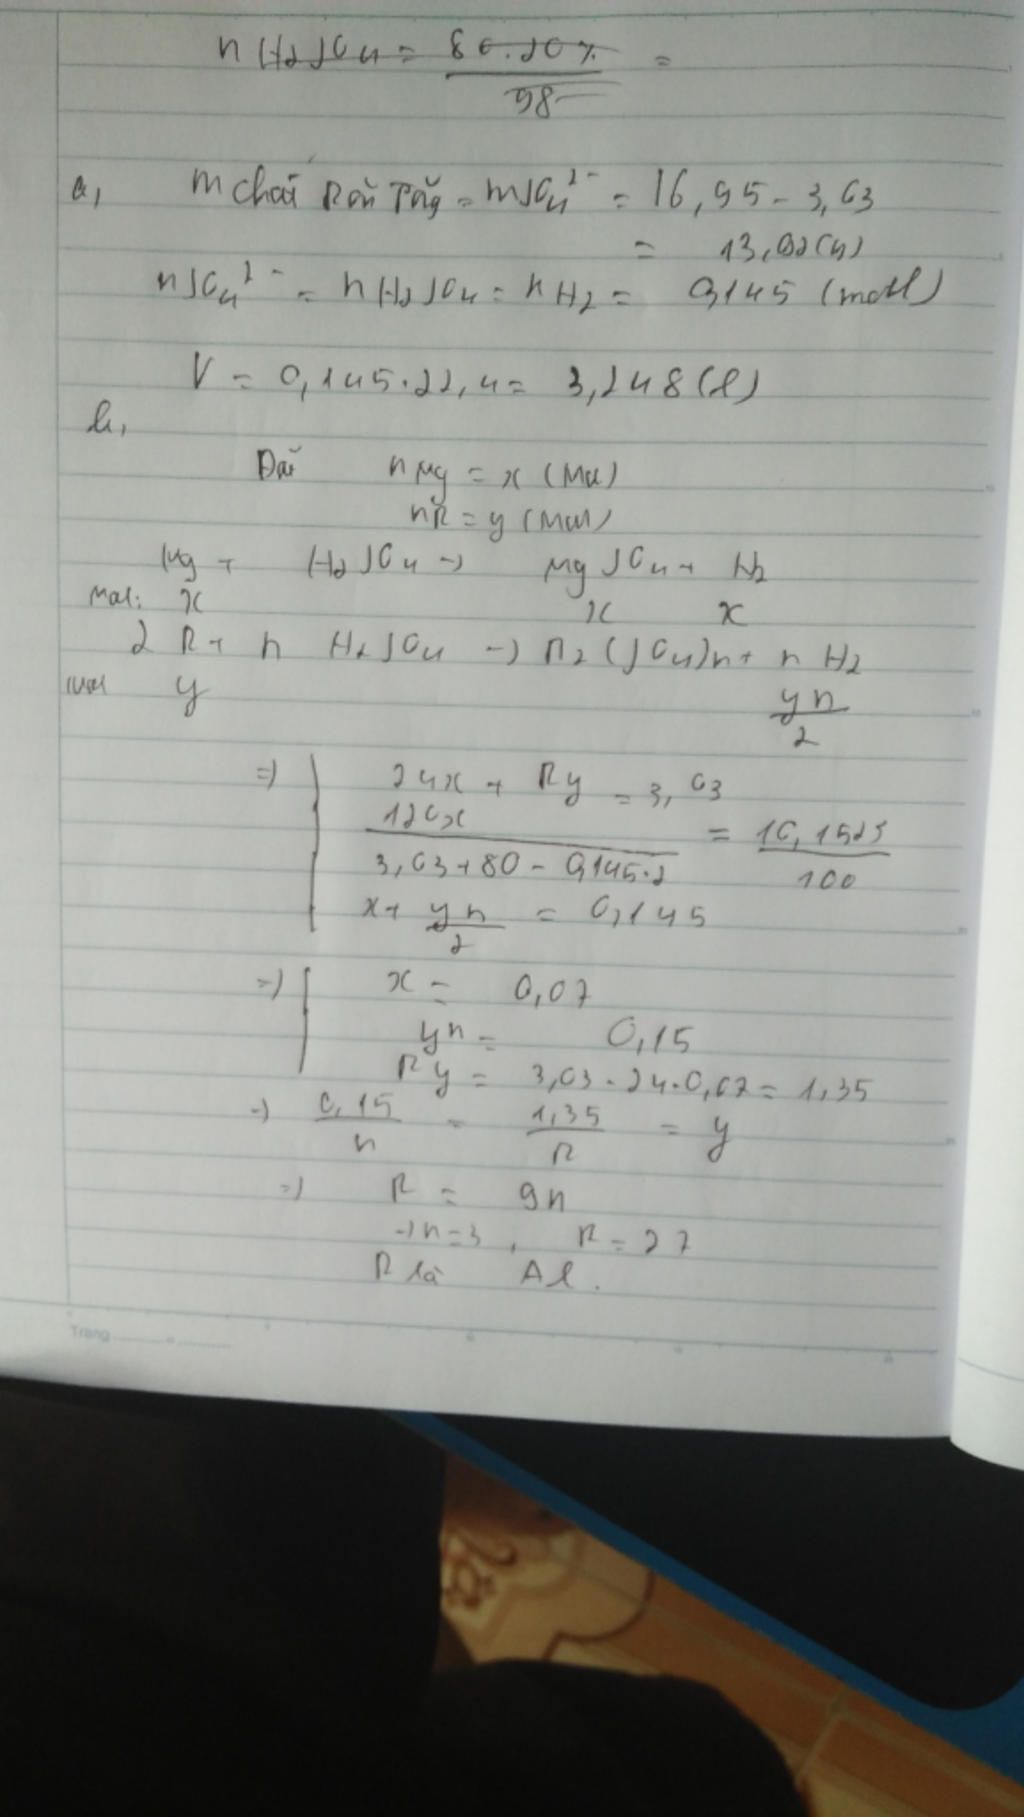 n H2SO4 = 80.20% / 98 =
a, m chất rắn tăng = mSO4 2- = 16,95 - 3,03
= 13,92(g)
nSO4 2- = nH2SO4 = nH2 = 0,145 (mol)
V = 0,145.22,4 = 3,248(l)
b,
Đặt nMg = x (mol)
nR = y (mol)
Mg + H2SO4 -> MgSO4 + H2
mol: x x x
2R + n H2SO4 -> R2(SO4)n + n H2
mol y yn/2
=> 24x + Ry = 3,03
120x / 3,03+80-0,145.2 = 10,1525 / 100
x + yn/2 = 0,145
=> x = 0,07
yn = 0,15
Ry = 3,03-24.0,07 = 1,35
-> 0,15/n = 1,35/R = y
=> R = 9n
-> n=3, R=27
R là Al.
Trang